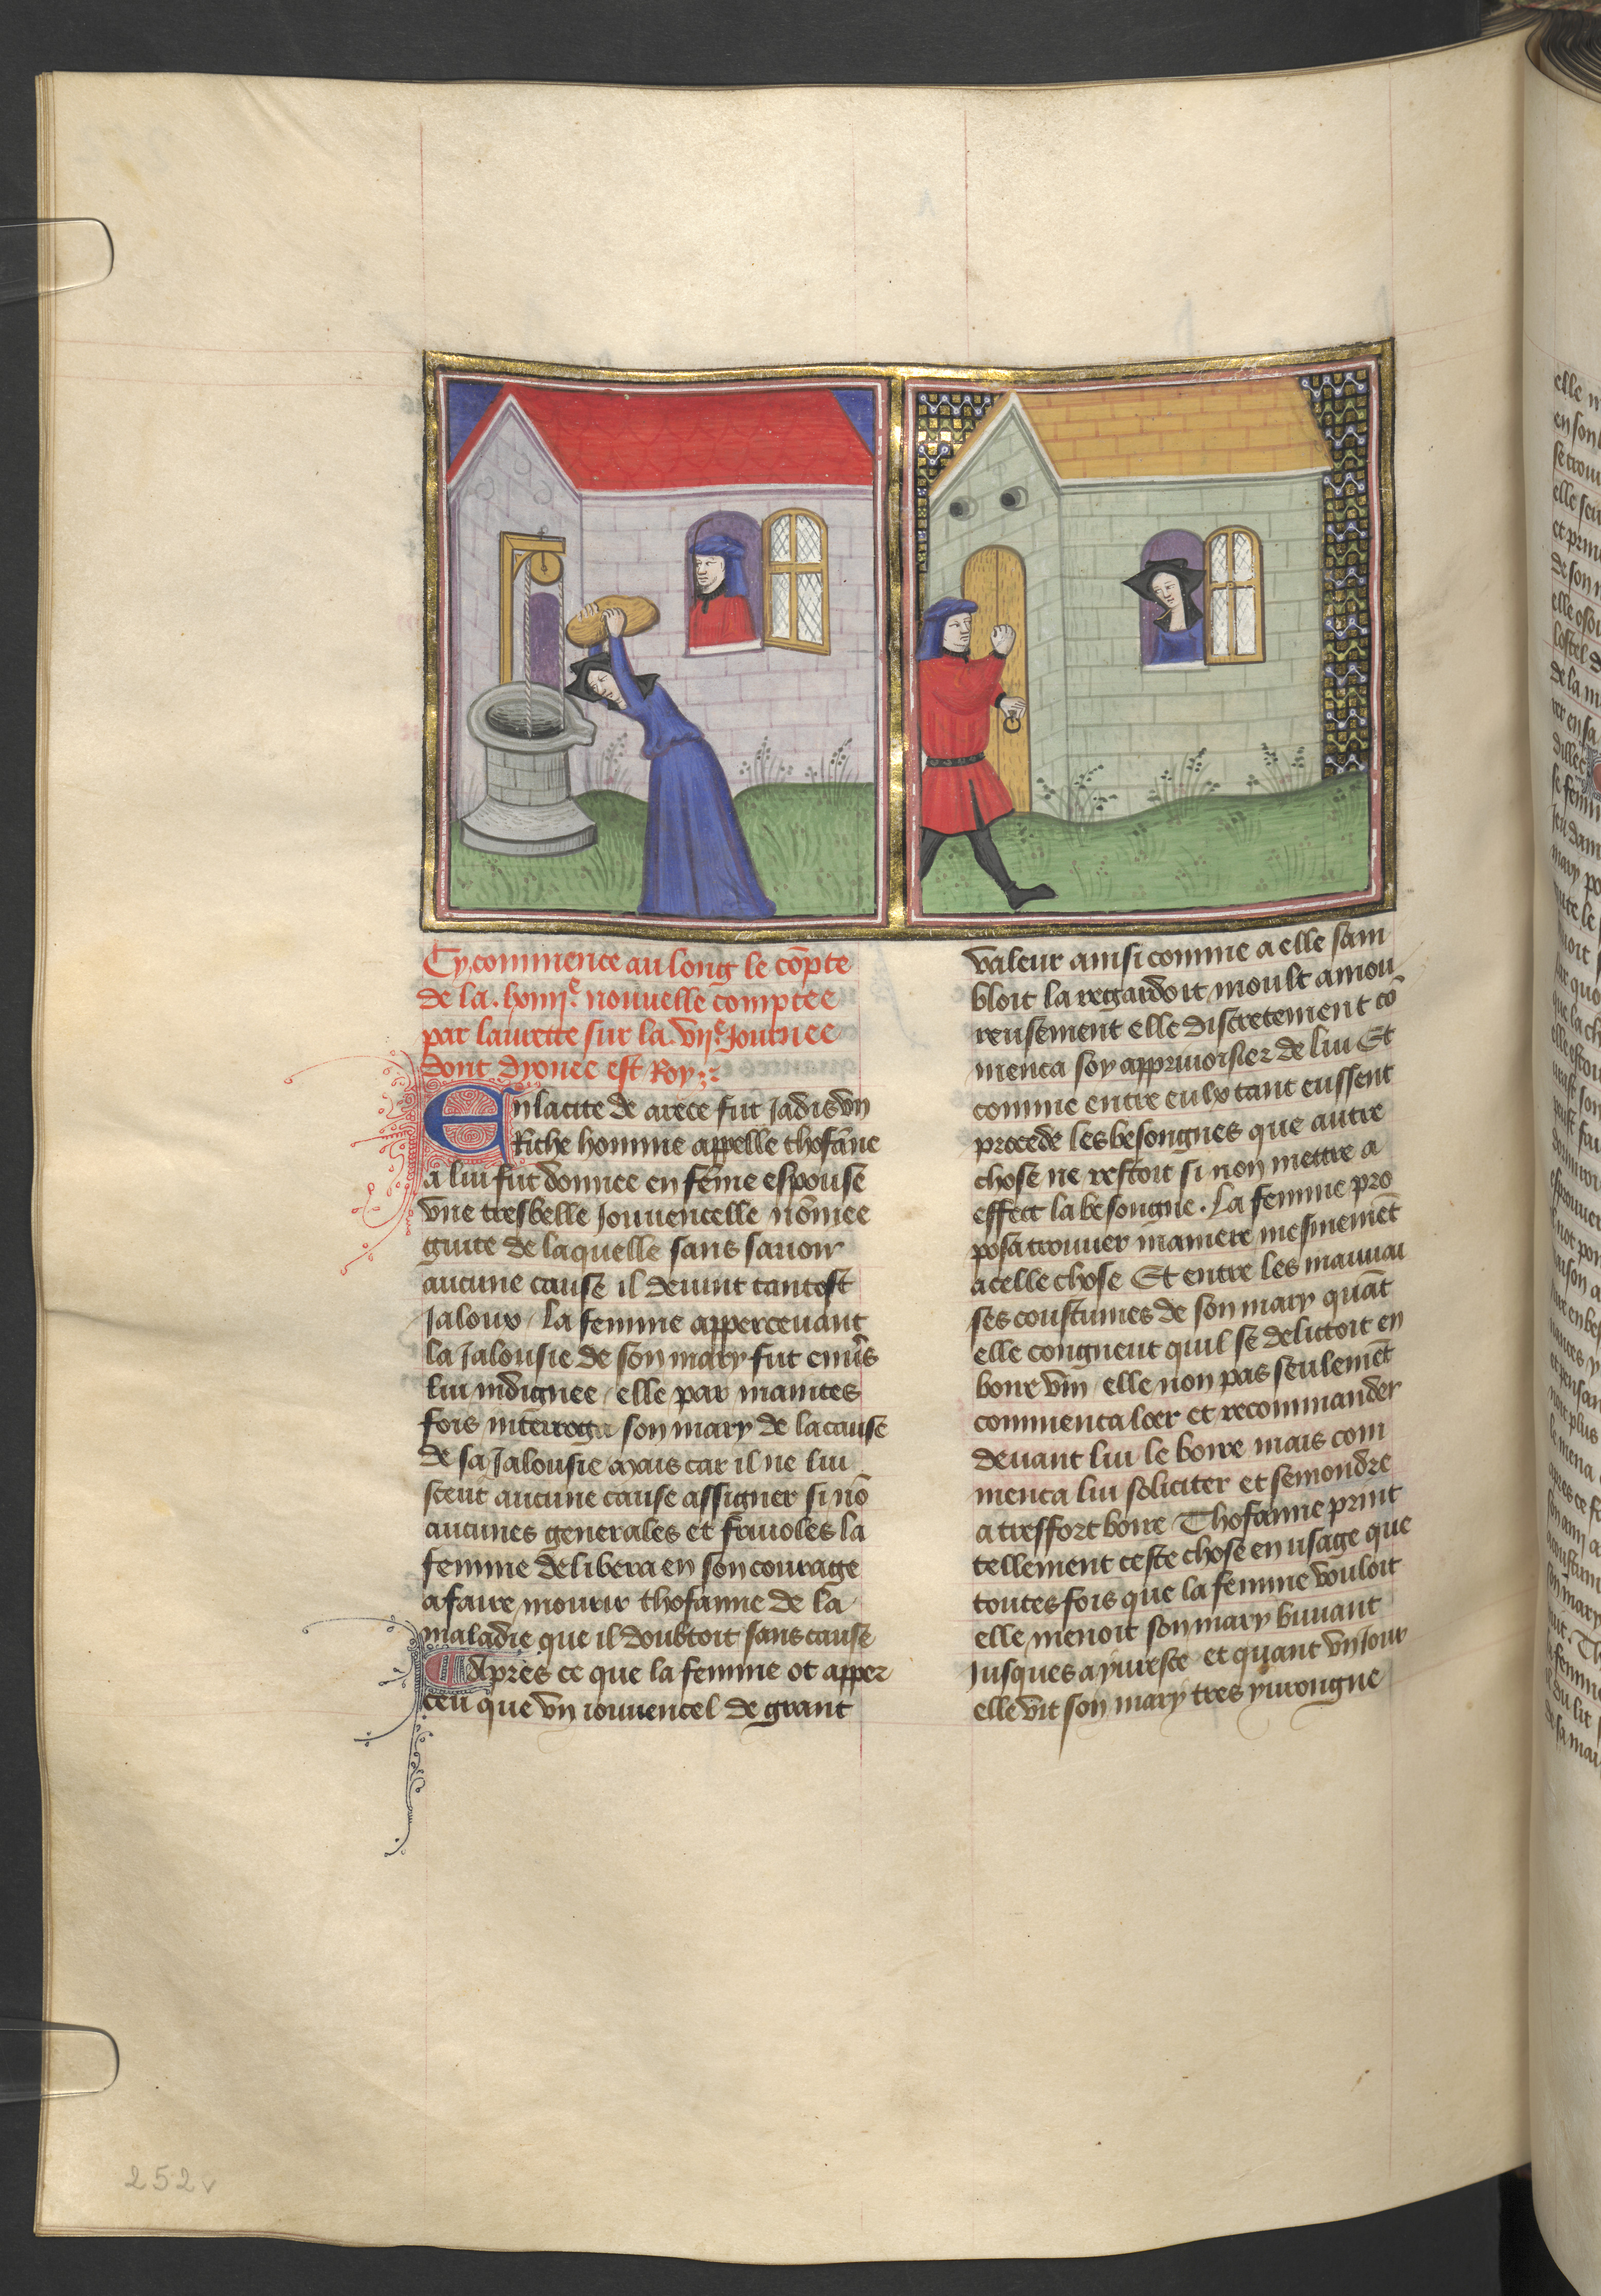 Cy commence au long le cõpte
de la .lxiiii.e nouuelle comptee
par laurette sur la .vii.e Journee
dont dyonee est Roy
En la cite de arece fut jadis vn
Riche homme appelle thofãne
a lui fut donnee en fẽme espouse
vne tresbelle jouuencelle nõmee
guite de laquelle sans sauoir
aucune cause il deuint tantost
jaloux / la femme apperceuant
la jalousie de son mary fut enuers
lui indignee / elle par maintes
fois interroga son mary de la cause
de sa jalousie mais car il ne lui
sceut aucune cause assigner si nõ
aucunes generales et friuoles la
femme delibera en son courage
a faire mourir thofanne de la
maladie que il doubtoit sans cause
Apres ce que la femme ot apper
ceu que vn iouuencel de grant
valeur ainsi comme a elle sam
bloit la regardoit moult amou
reusement elle discretement cõ
menca soy appriuoisier de lui Et
comme entre eulx tant eussent
procede les besongnes que autre
chose ne restoit si non mettre a
effect la besongne . La femme pro
posa trouuer maniere mesmemẽt
a celle chose Et entre les mauuai
ses coustumes de son mary quãt
elle congneut quil se delictoit en
boire vin / elle non pas seulemẽt
commenca loer et recommander
deuant lui le boire mais com
menca lui soliciter et semondre
a tresfort boire Thofanne print
tellement ceste chose en usage que
toutesfois que la femme vouloit
elle menoit son mary buuant
jusques a yuresce et quant vn jour
elle vit son mary tres yurongne
252v